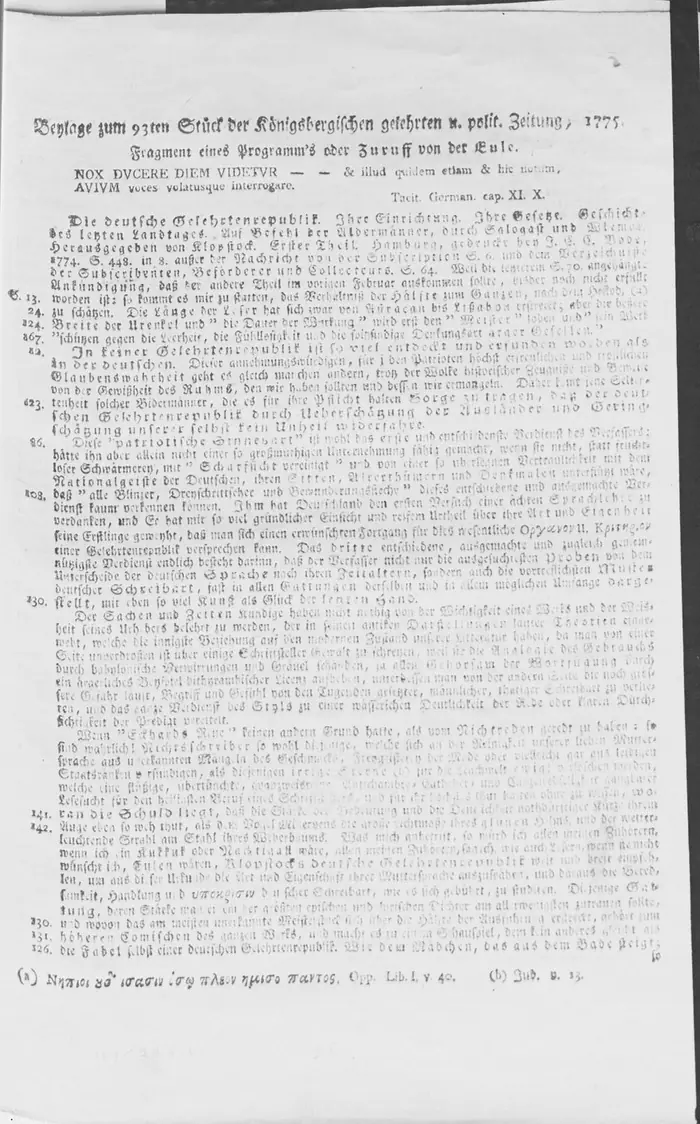 Beylage zum 93ten Stück der Königsbergischen gelehrten u. polit. Zeitung, 1775.
Fragment eines Programm's oder Zuruff von der Eule.
NOX DVCERE DIEM VIDETVR — — & illud quidem etiam & hic notum,
AVIVM voces volatusque interrogare.
Tacit. German. cap. XI. X.
Die deutsche Gelehrtenrepublik. Ihre Einrichtung. Ihre Gesetze. Geschichte
des letzten Landtages. Auf Befehl der Aldermänner, durch Salogast und Wlemar.
Herausgegeben von Klopstock. Erster Theil. Hamburg, gedruckt bey J. J. C. Bode,
1774. S. 448. in 8. außer der Nachricht von der Subscription S. 6. und dem Verzeichniße
der Subscribenten, Beförderer und Collecteurs. S. 64. Weil die letzterem S. 70. angehängte
Ankündigung, daß der andere Theil im vorigen Februar auskommen sollte, bisher noch nicht erfüllt
S. 13. worden ist: so kommt es mir zu statten, das Verhältniß der Hälfte zum Ganzen, nach dem Hesiod, (a)
24. zu schätzen. Die Länge der Leser hat sich zwar von Kuraçao bis Lißabon erstreckt; aber die bessere
224. Breite der Urenkel und " die Dauer der Würkung " wird erst den " Meister " loben und " sein Werk
267. "schützen gegen die Leerheit, die Fühllosigkeit und die spitzfündige Deutungssucht arger Gesellen."
82. In keiner Gelehrtenrepublik ist so viel entdeckt und erfunden worden als
in der deutschen. Dieser annehmungswürdigen, für jeden Patrioten höchst erfreulichen und tröstlichen
Glaubenswahrheit geht es gleich manchen andern, trotz der Wolke historischer Zeugniße und Beweise
von der Gewißheit des Ruhms, den wir haben sollten und dessen wir ermangeln. Daher kömt jene Selten-
423. tenheit solcher Bidermänner, die es für ihre Pflicht halten Sorge zu tragen, daß der deut-
schen Gelehrtenrepublik durch Ueberschätzung der Ausländer und Gering-
schätzung unserer selbst kein Unheil widerfahre.
86. Diese "patriotische Sinnesart" ist wohl das erste und entschiedenste Verdienst des Verfassers;
hätte ihn aber allein nicht einer so großmüthigen Unternehmung fähig gemacht, wenn sie nicht, statt frucht-
loser Schwärmerey, mit " Scharfsicht vereinigt " und von einer so überlegenen Vertraulichkeit mit dem
Nationalgeiste der Deutschen, ihren Sitten, Alterthümern und Denkmalen unterstützt wäre,
208. daß "alle Blinzer, Dreyschrittseher und Bewunderungssieche" dieses entschiedene und ausgemachte Ver-
dienst kaum verkennen können. Ihm hat Deutschland den ersten Versuch einer ächten Sprachlehre zu
verdanken, und Er hat mir so viel gründlicher Einsicht und reifem Urtheil über ihre Art und Eigenheit
seine Erstlinge geweyht, daß man sich einen erwünschten Fortgang für dies wesentliche Οργανον u. Κριτηριον
einer Gelehrtenrepublik versprechen kann. Das dritte entschiedene, ausgemachte und zugleich gemein-
nützigste Verdienst endlich besteht darinn, daß der Verfasser nicht nur die ausgesuchtesten Proben von dem
Unterscheide der deutschen Sprache nach ihren Zeitaltern, sondern auch die vortreflichsten Muster
deutscher Schreibart, fast in allen Gattungen derselben und in allem möglichen Umfange darge-
230. stellt, mit eben so viel Kunst als Glück der letzten Hand.
Der Sachen und Zeiten Kundige haben nicht nöthig von der Wichtigkeit eines Werks und der Weis-
heit seines Urhebers belehrt zu werden, der in seinen antiken Darstellungen lauter Theorien einge-
webt, welche die innigste Beziehung auf den modernen Zustand unserer Litteratur haben, da man von einer
Seite unverdrossen ist über einige Schriftsteller Gewalt zu schreyen, weil sie die Analogie des Gebrauchs
durch babylonische Verwirrungen und Gräuel schänden, zu allem Gehorsam der Wortfügung durch
ein ärgerliches Beyspiel dithyrambischer Licenz aufheben, unterdessen man von der andern Seite die noch größ-
sere Gefahr läuft, Begriff und Gefühl von den Tugenden gesetzter, männlicher, thätiger Schreibart zu verlie-
ren, und das ganze Verdienst des Styls zu einer wässerichen Deutlichkeit der Rede oder klaren Durch-
sichtigkeit der Predigt vereitelt.
Wenn "Eckhards Rüge" keinen andern Grund hatte, als vom Nichtreden geredt zu haben: so
sind wahrlich! Nichtsschreiber so wohl diejenige, welche sich an der Reinigkeit unserer lieben Mutter-
sprache aus unerkannten Mangeln des Geschmacks,
Staatsränken versündigen, als diejenigen irrige Sterne
welche eine
Lesesucht für den heilsamsten Beruf eines Schriftstellers
241. ran die Schuld liegt, daß die Stärke der Bedeutung und die Deutlichkeit nothdürftiger Kürze ihrem
242. Auge eben so weh thut, als dem Vogel Minervens die große Lichtmasse ihres hohen Hains, und der wetter-
leuchtende Strahl am Stahl ihres Weberbaums. Was mich anbetrift, so würd ich allen meinen Zuhörern,
wenn ich ein Kukkuk oder Nachtigall wäre, allen meinen Zuhörern, sag ich, wie auch Lesern, wenn sie nicht
wünschten, Eulen wären, Klopstocks deutsche Gelehrtenrepublik weit und breit empfeh-
len, um aus dieser Urkunde die Art und Eigenschaft ihrer Muttersprache auszugraben, und daraus die Bered-
samkeit, Handlung und υποκρισιν deutscher Schreibart, wie es sich gebührt, zu studiren. Diejenige Gat-
tung, deren Stärke man einem der größten epischen und lyrischen Dichter am allerwenigsten zutrauen sollte,
230. und wovon das am meisten unerkannte Meisterstück sich über die Hälfte der Ausführung erstreckt, gehört zum
131. höheren Comischen des ganzen Werks, und macht es zu einem Schauspiel, dem kein anderes gleicht als
126. die Fabel selbst einer deutschen Gelehrtenrepublik. Wie dem Mädchen, das aus dem Bade steigt,
so
(a) Νηπιοι ȣδ' ισασιν ὁσῳ πλεον ημισυ παντος. Opp. Lib. I, v. 40. (b) Jud. v. 13.